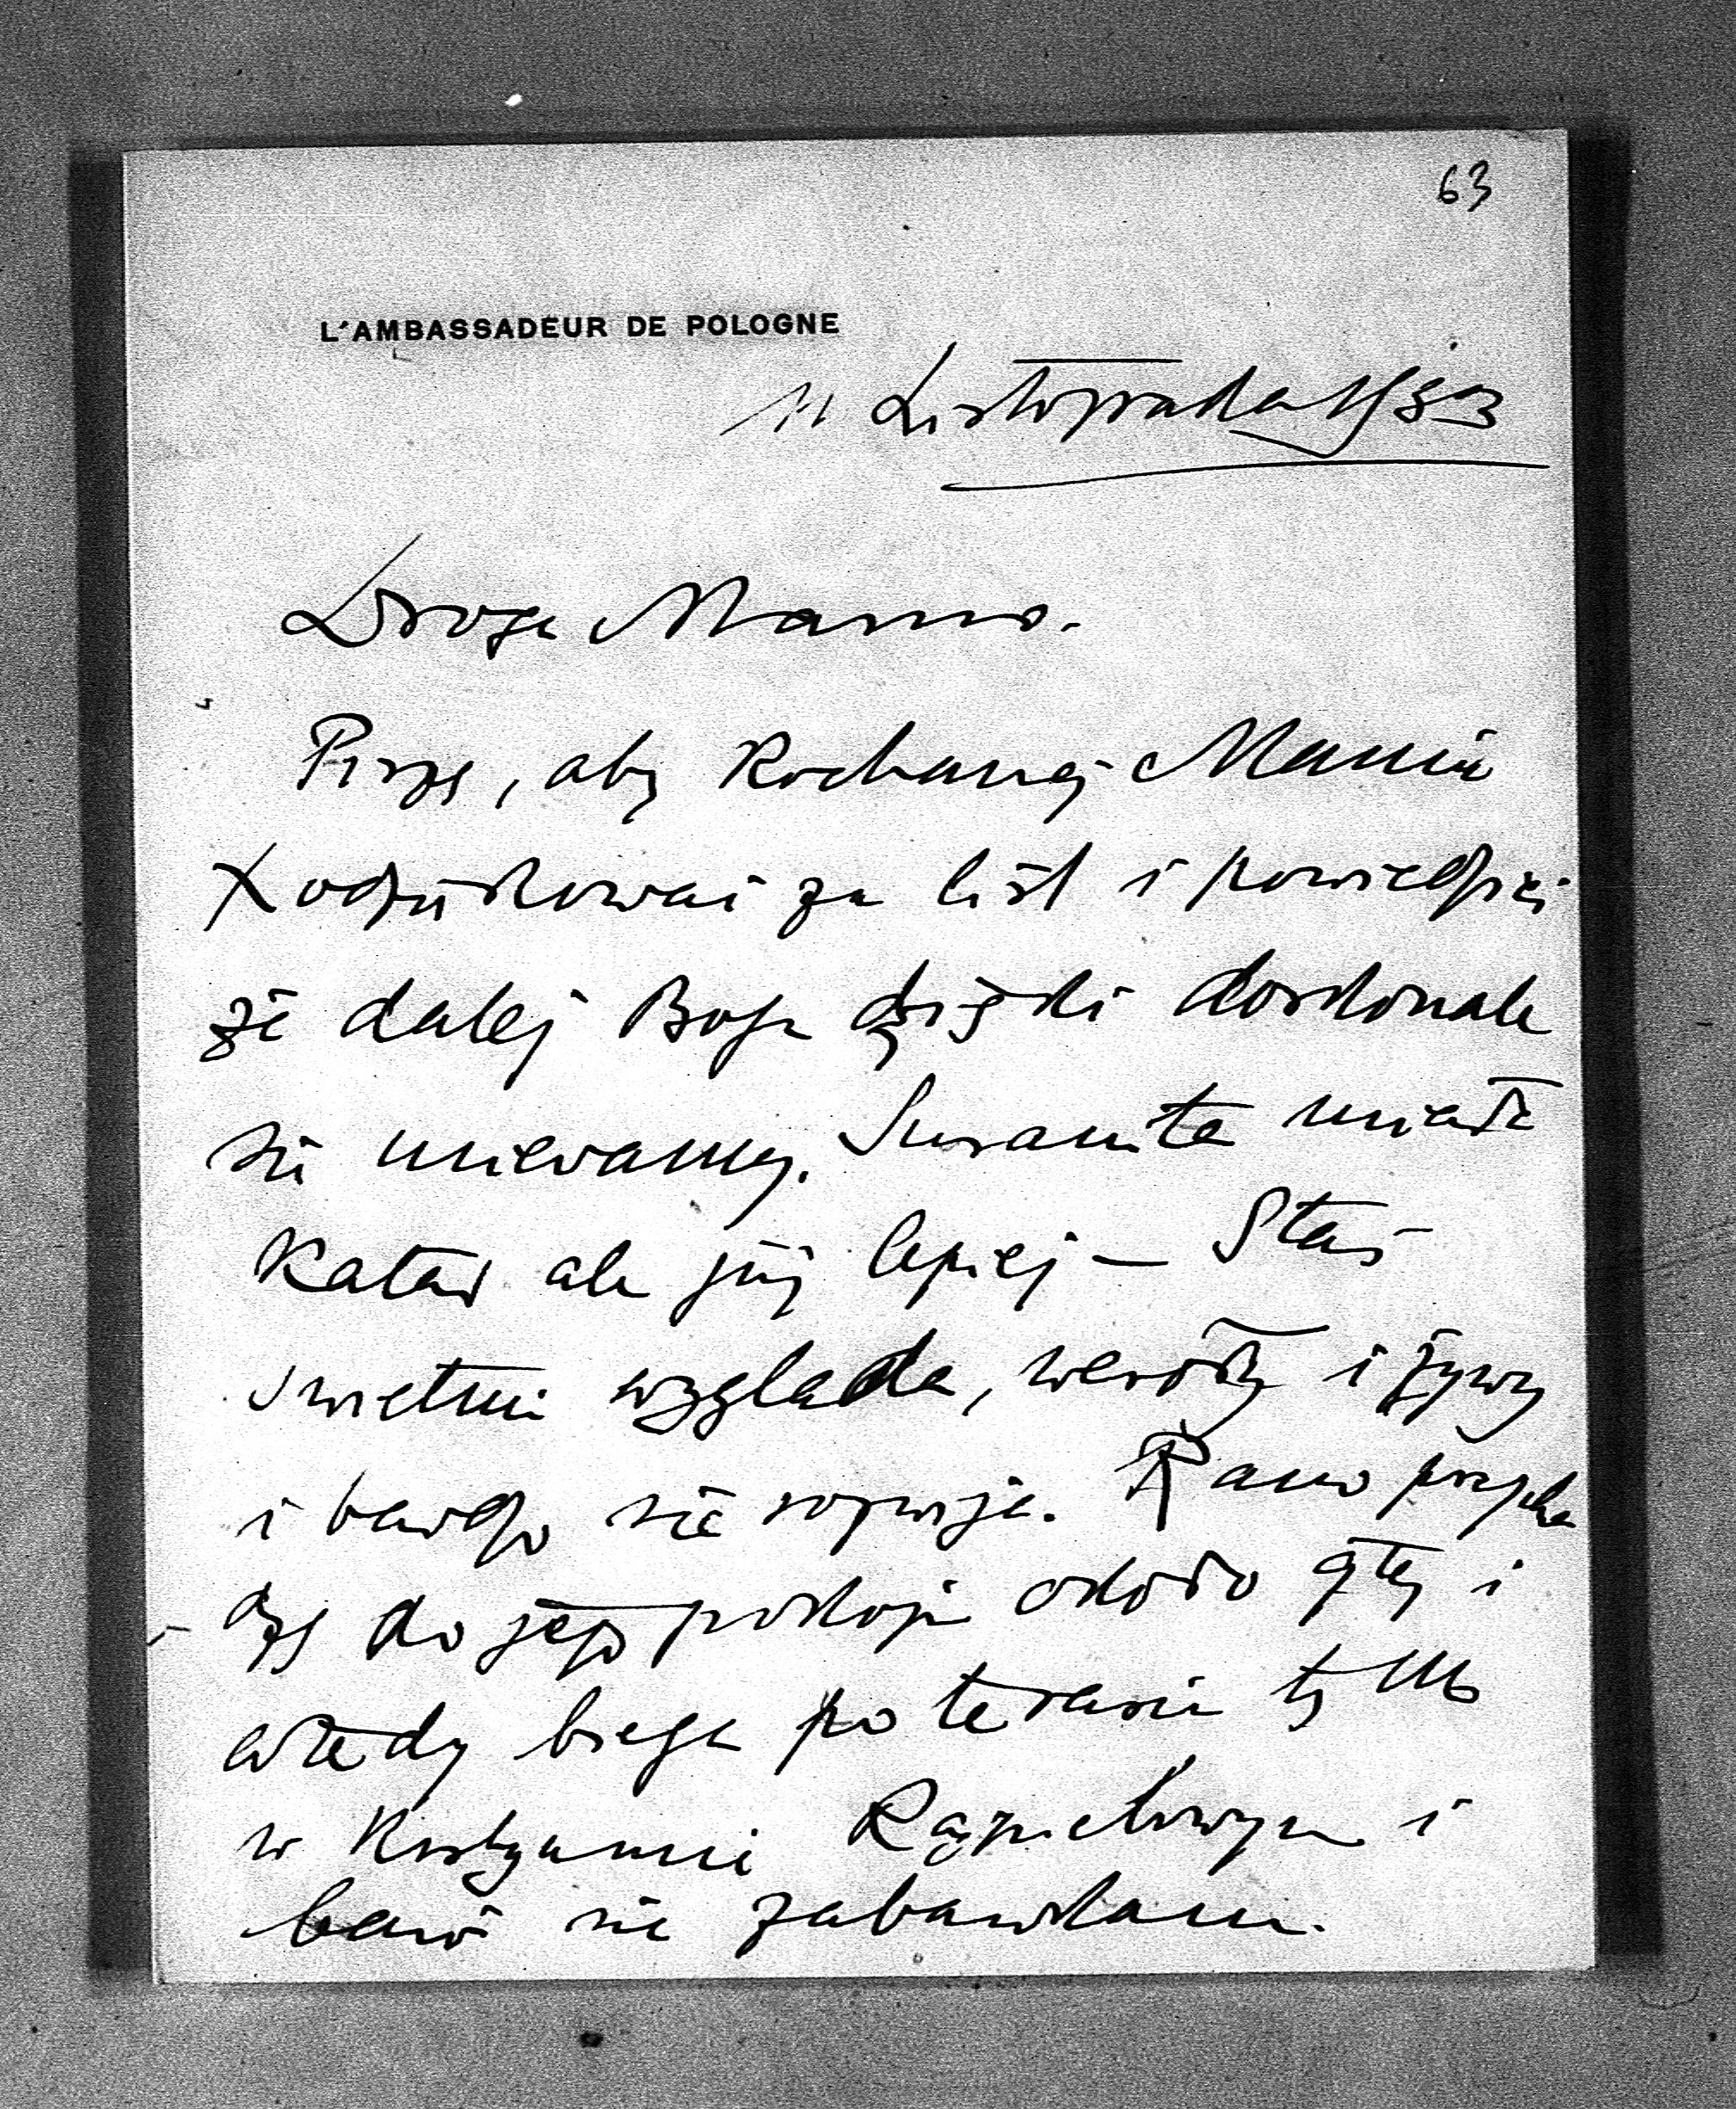 63
L'AMBASSADEUR DE POLOGNE
11 Listopada 1933
Droga Mamo.
Piszę, aby Kochanej Mamie
podziękować za list i powiedzieć
że dalej Bogu dzięki doskonale
się miewamy. Zuzanita miała
Katar ale już lepiej — Staś
swietnie wygląda, wesoły i żywy
i bardzo się rozwija. Rano przycho
dzę do jego pokoju około 9tej i
wtedy biega po terasie tylko
w Kostyumie Kąpielowym i
bawi się zabawkami.